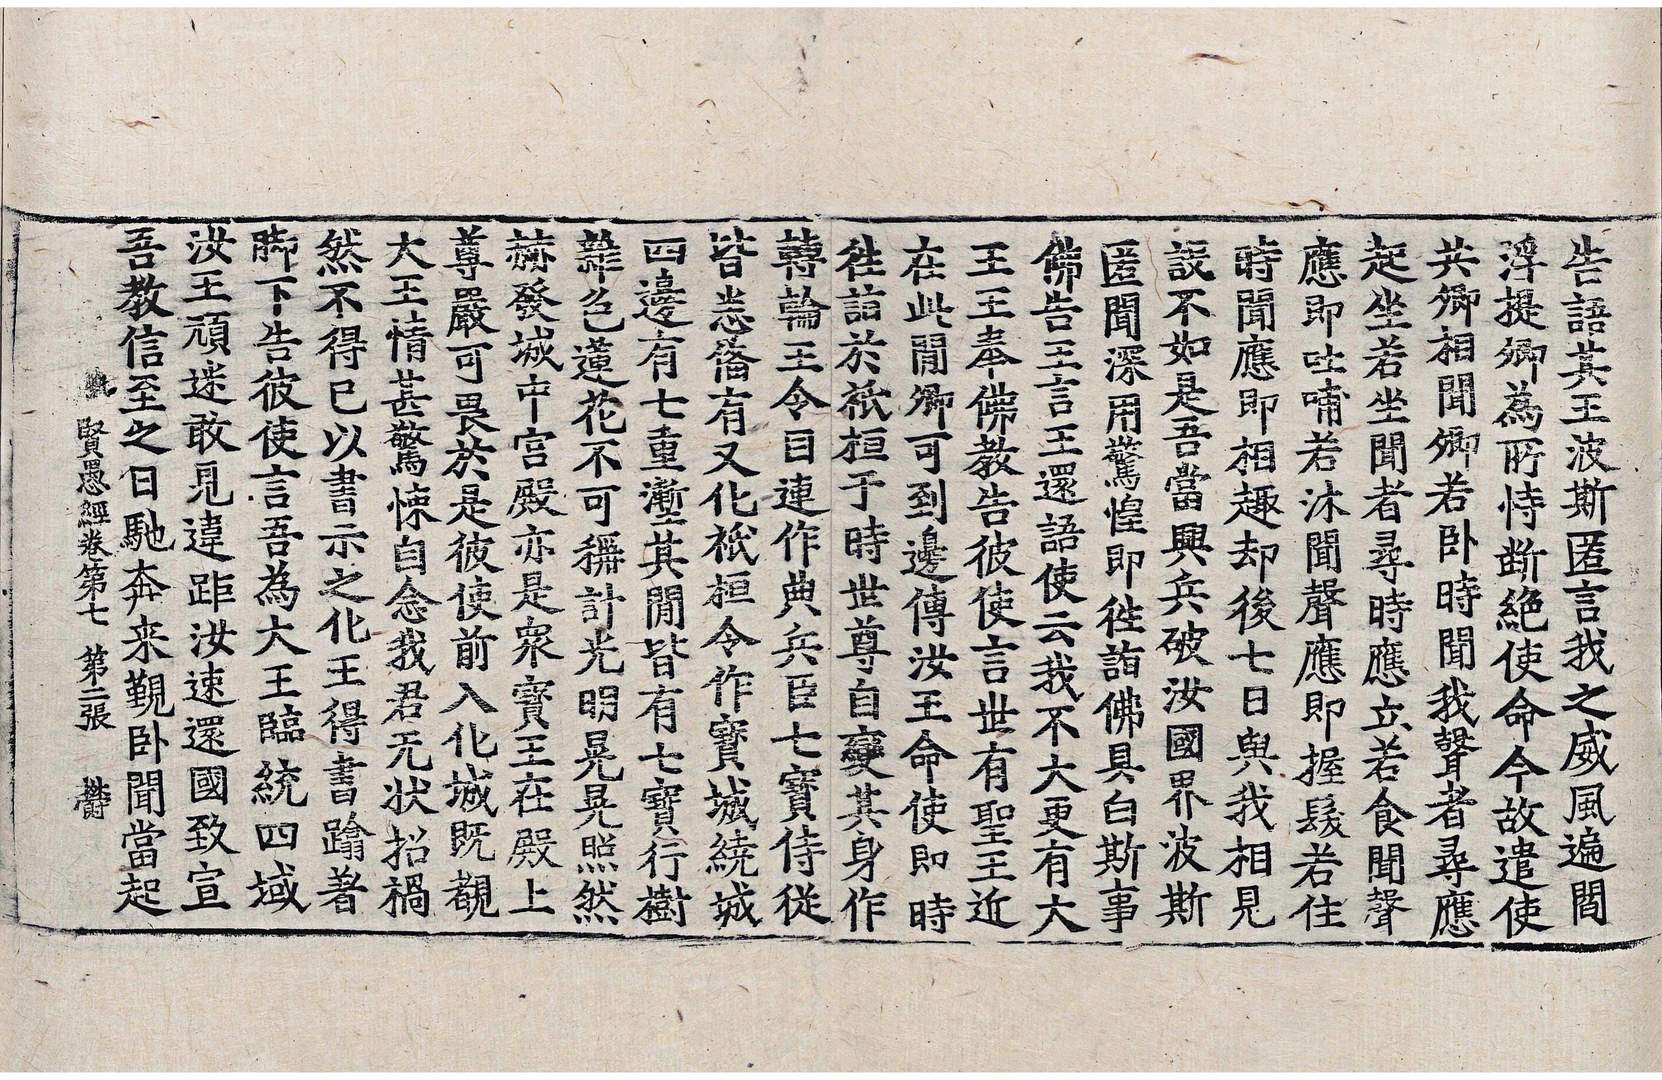 告語其王波斯匿言我之威風遍閻
浮提卿為所恃斷絶使命今故遣使
共卿相聞卿若卧時聞我聲者尋應
起坐若坐聞者尋時應立若食聞聲
應即吐哺若沐聞聲應即握髮若住
時聞應即相趣却後七日與我相見
設不如是吾當興兵破汝國界波斯
匿聞深用驚惶即徃詣佛具白斯事
佛告王言王還語使云我不大更有大
王王奉佛教告彼使言世有聖王近
在此間卿可到邊傳汝王命使即時
徃詣於祇桓于時世尊自變其身作
轉輪王令目連作典兵臣七寶侍從
皆悉備有又化祇桓令作寶城繞城
四邊有七重塹其間皆有七寶行樹
雜色蓮花不可稱計光明晃晃照然
赫發城中宮殿亦是衆寶王在殿上
尊嚴可畏於是彼使前入化城既覩
大王情甚驚悚自念我君无状招禍
然不得已以書示之化王得書蹋著
脚下告彼使言吾為大王臨統四域
汝王頑迷敢見違距汝速還國致宣
吾教信至之日馳奔来覲卧聞當起
賢愚經卷第七 第二張 欝